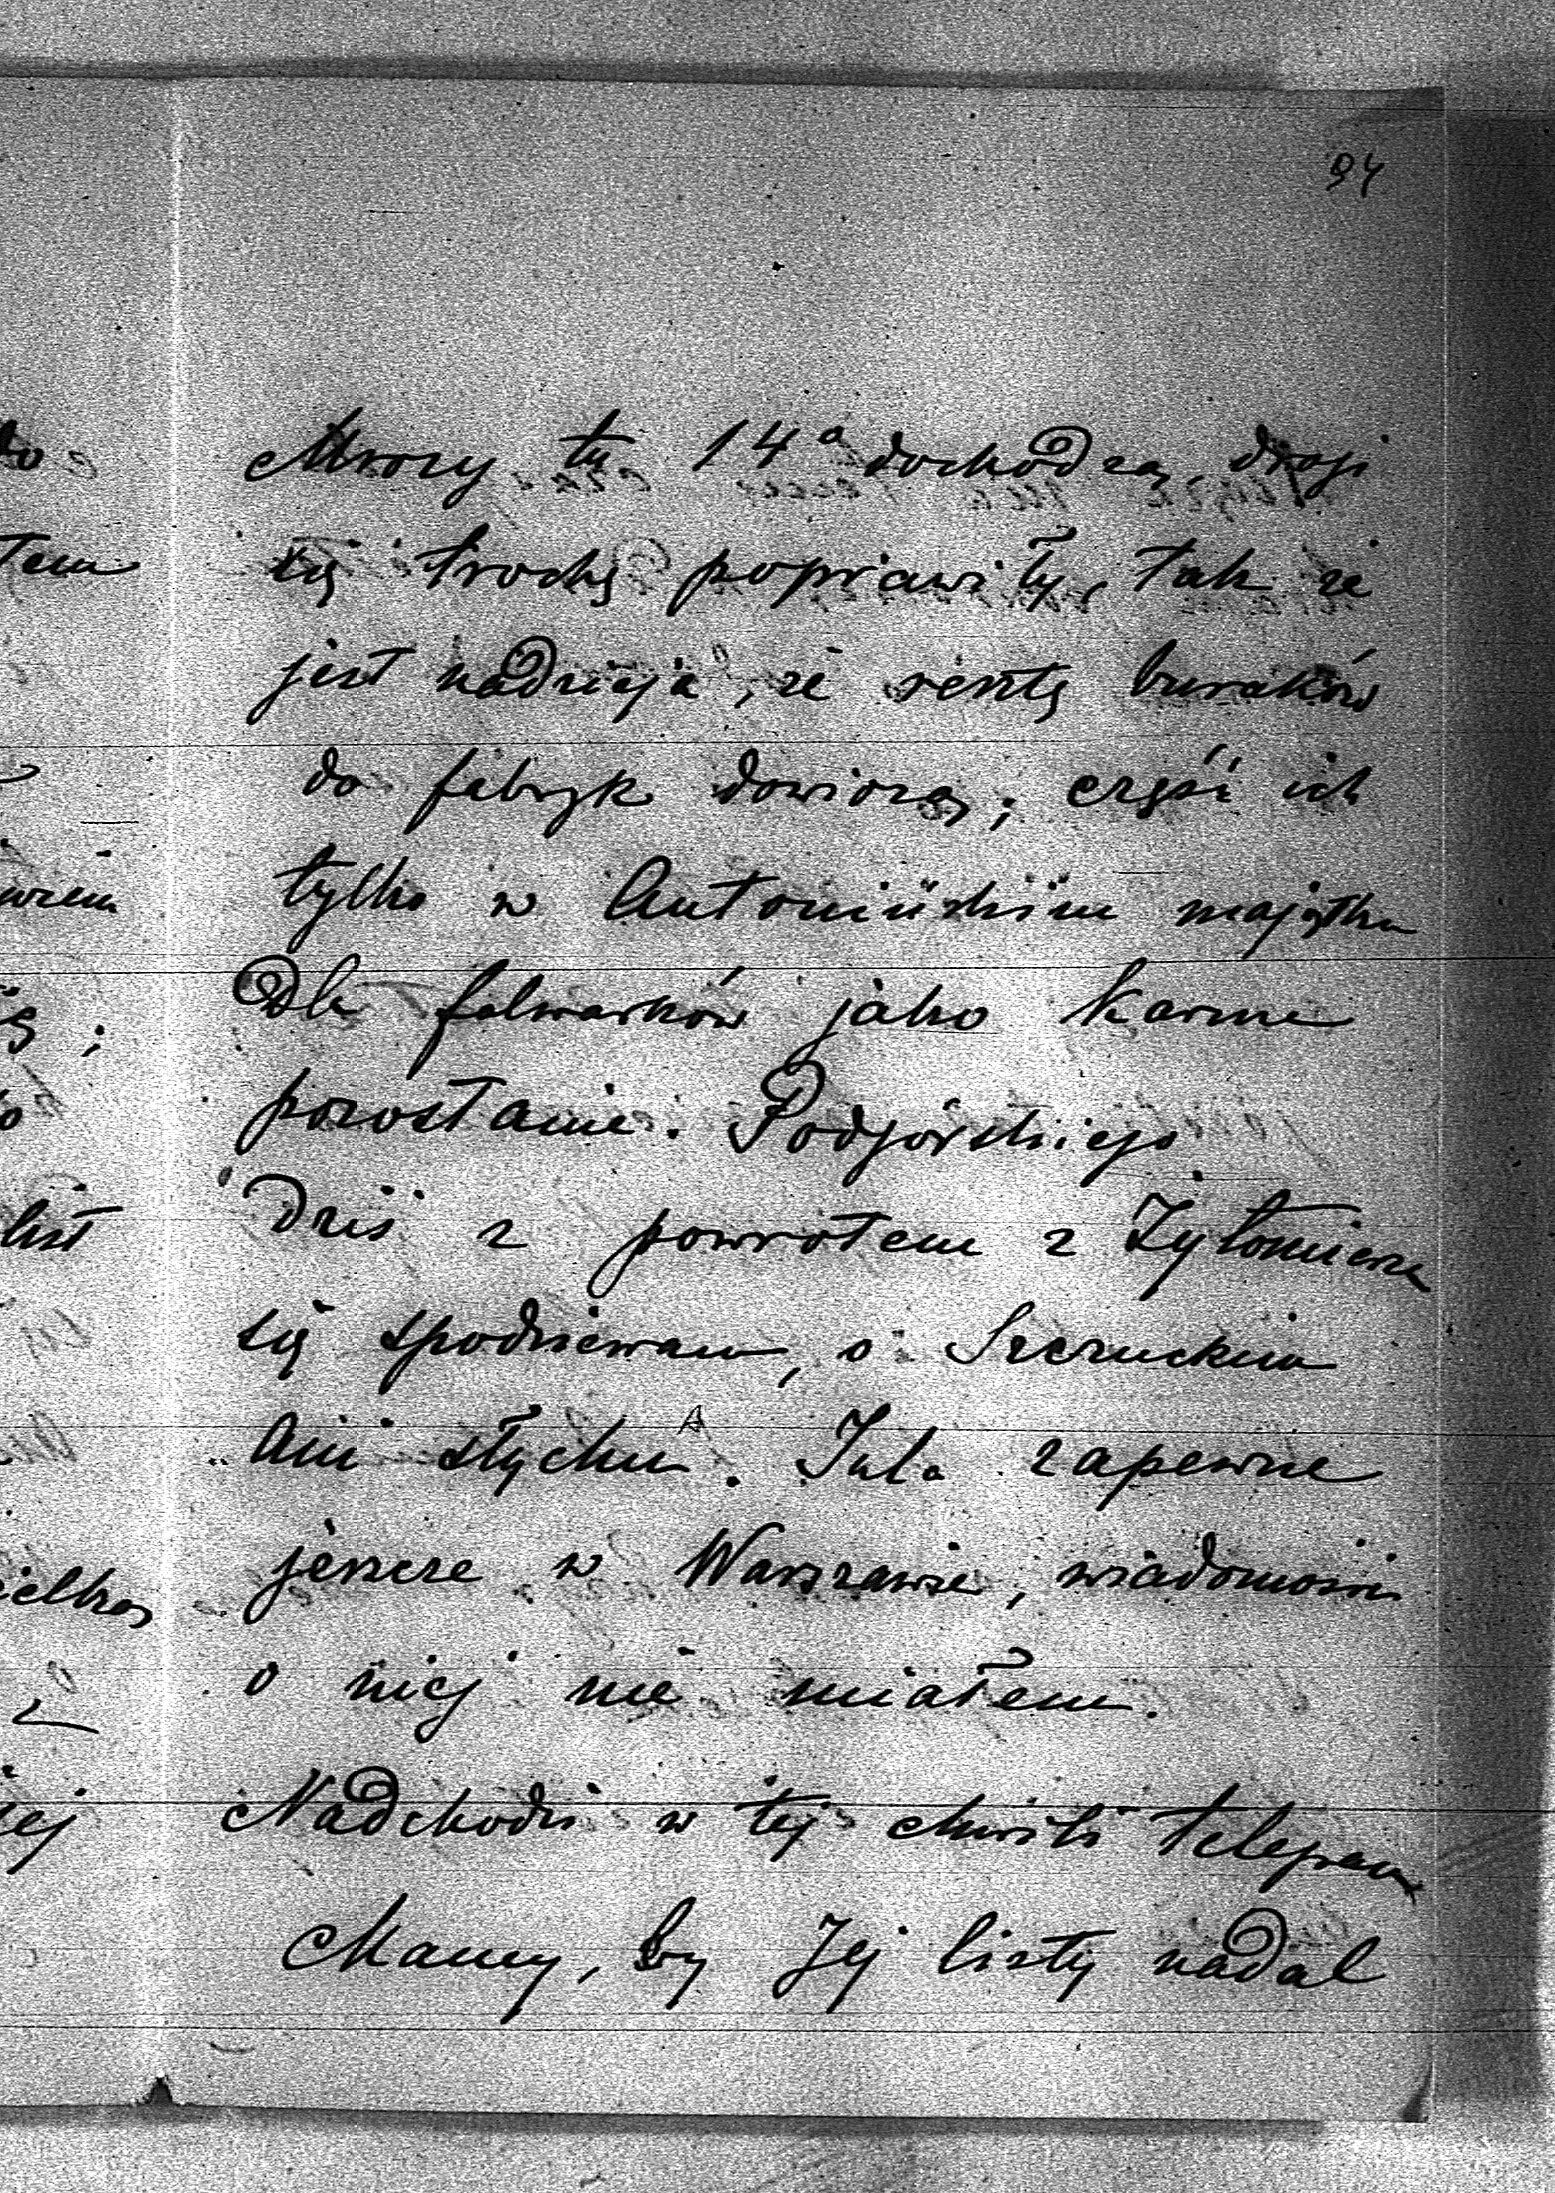 94
Mrozy tu 14° dochodzą, drogi
się trochę poprawiły, tak że
jest nadzieja, że resztę buraków
do fabryk dowiozą; część ich
tylko w Antonińskim majątku
Dla folwarków jako karma
pozostanie. Podgórskiego
Dziś z powrotem z Żytomierza
się spodziewam, o Szczuckim
ani słychu. Jula zapewne
jeszcze w Warszawie, wiadomości
o niej nie miałem.
Nadchodzi w tej chwili telegram
Mamy, by Jej listy nadal